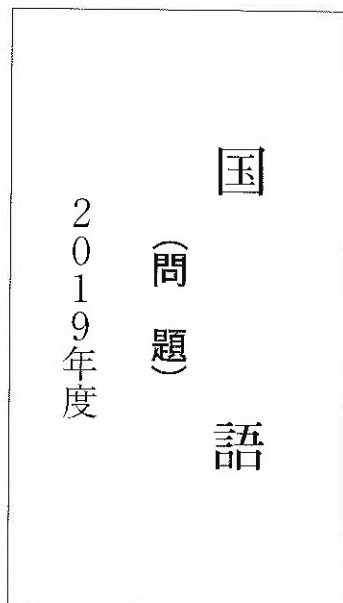 国語
（問題）
2019年度